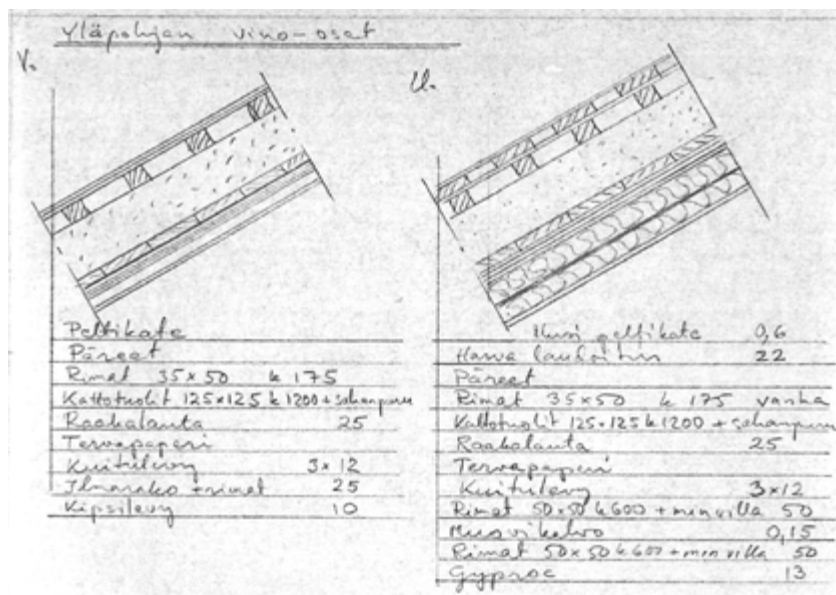 Yläpohjan vino-osat
V.
U.
Peltikate
Päreet
Rimat 35x50 k 175
Kattotuolit 125x125 k 1200 + sahanpuru
Raakalauta 25
Tervapaperi
Kuitulevy 3x12
Ilmarako + rimat 25
Kipsilevy 10
Uusi peltikate 0,6
Harva laudoitus 22
Päreet
Rimat 35x50 k 175 vanha
Kattotuolit 125x125 k 1200 + sahanpuru
Raakalauta 25
Tervapaperi
Kuitulevy 3x12
Rimat 50x50 k600 + min villa 50
Muovikalvo 0,15
Rimat 50x50 k 600 + min villa 50
Gyproc 13